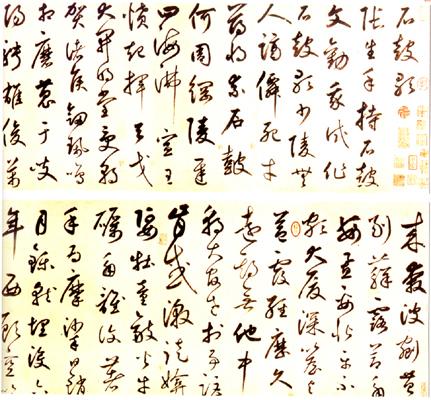 石鼓歌
張生手持石鼓
文勸我試作
石鼓歌少陵無
人謫僊死才
薄將奈石鼓
何周綱陵遲
四海沸宣王
憤起揮天戈
大開明堂受朝
賀諸侯劒珮鳴
相磨蒐于岐
陽騁雄俊萬
來奔波剜苔
剔蘚露節角
安置妥帖平不
頗大廈深簷與
蓋覆經歷久
遠期無他中
朝大官老於事詎
肯感激徒媕
婀牧童敲火牛
礪角誰復著
手為摩挲日銷
月鑠就埋沒六
年西顧空